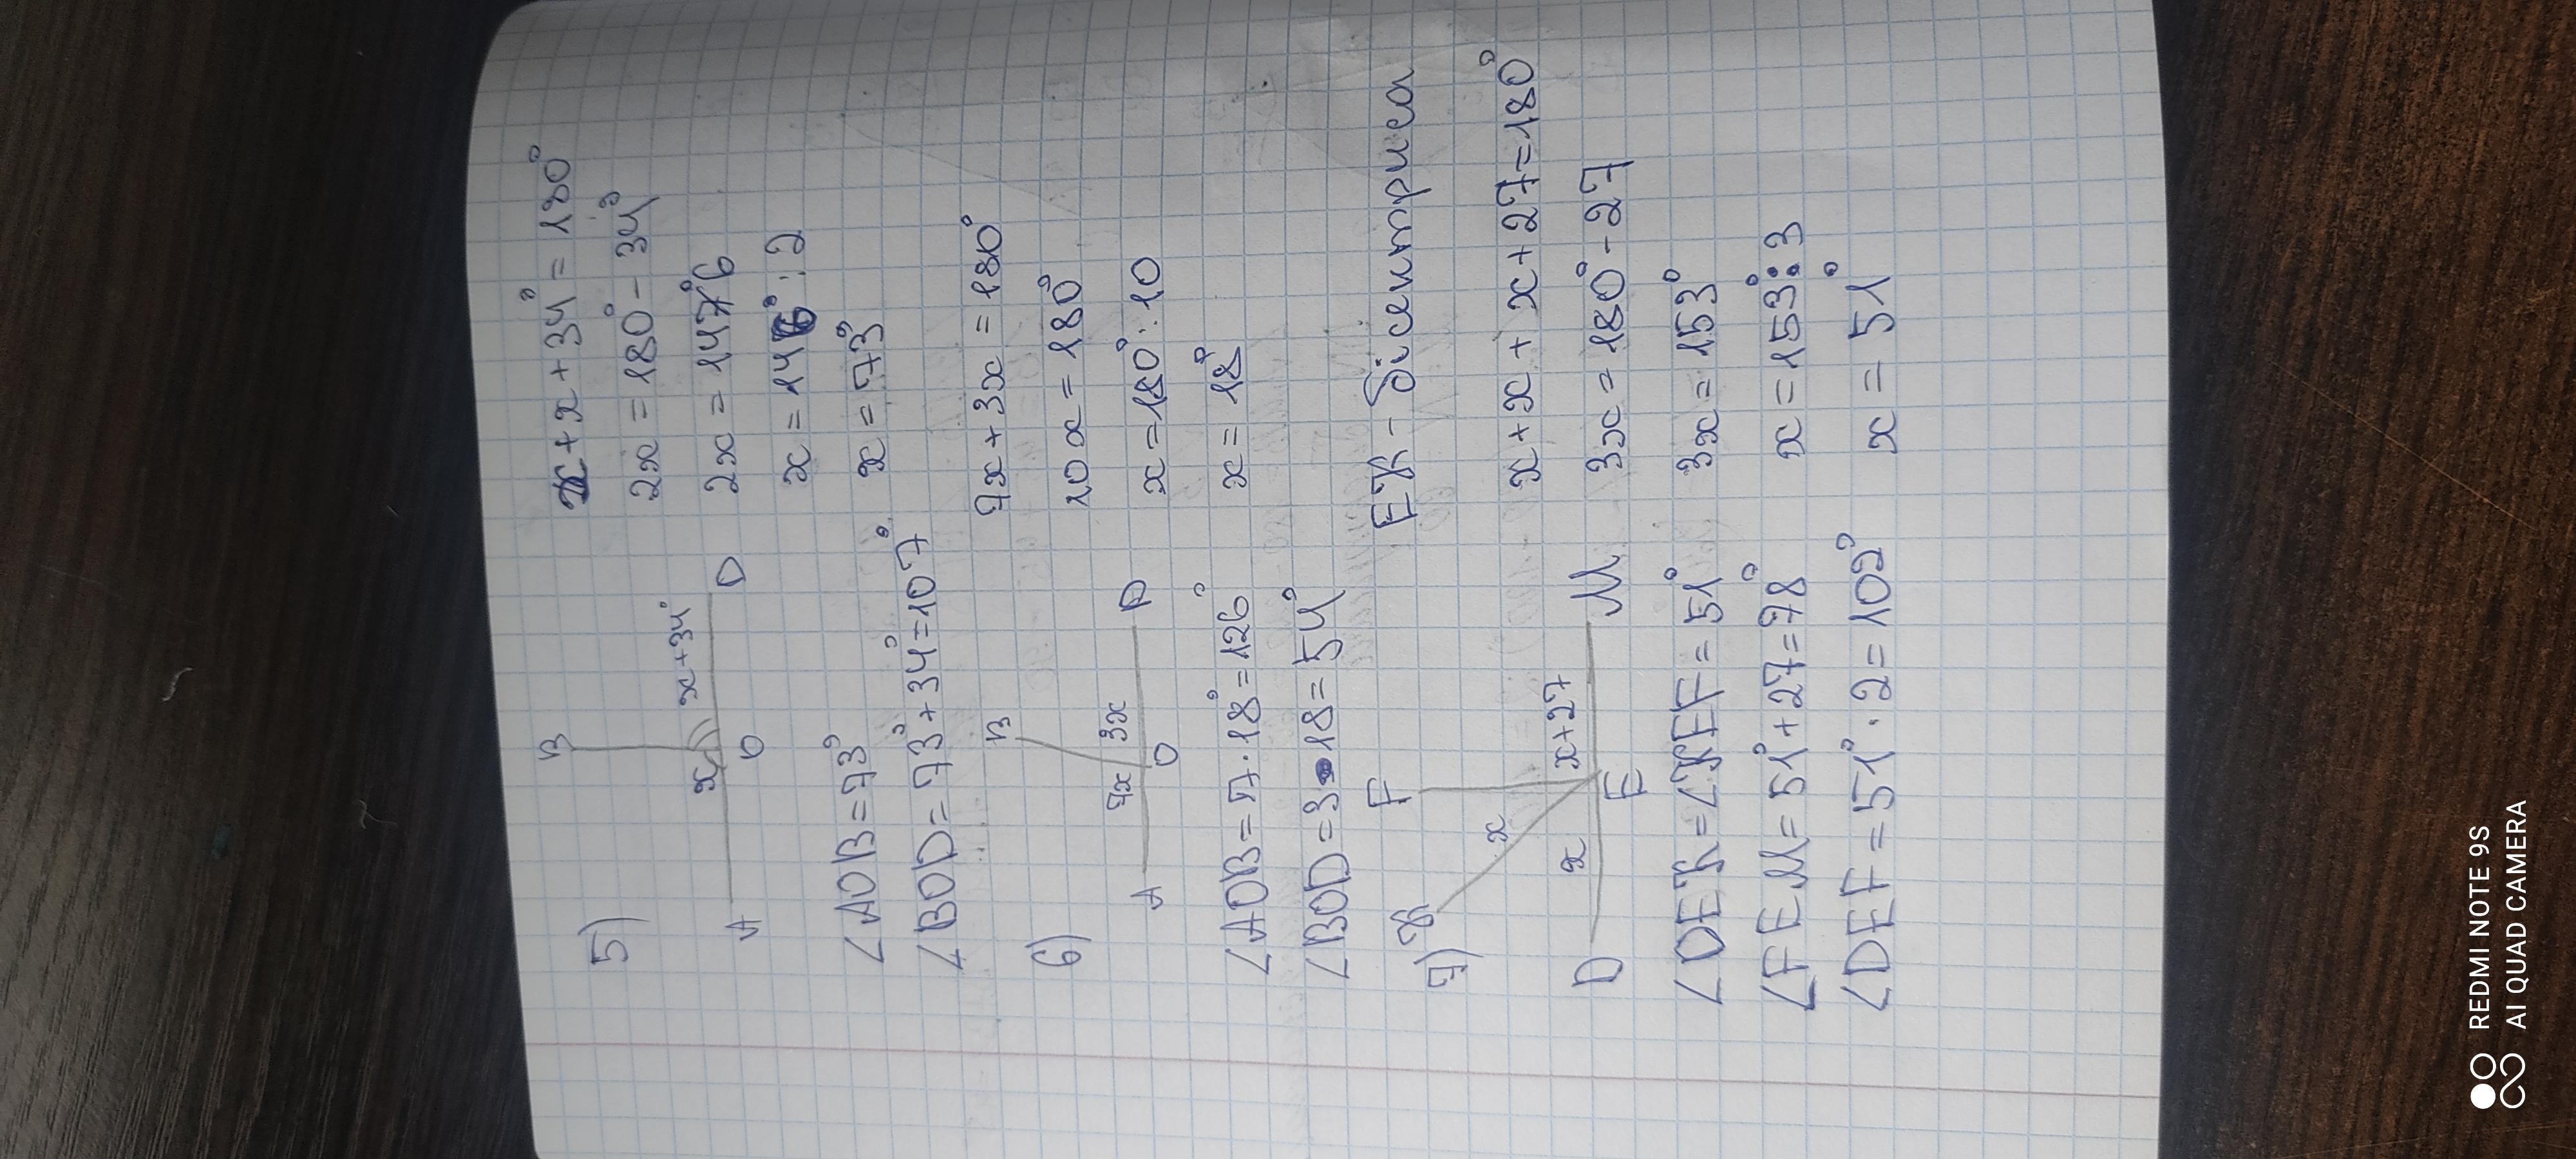 5)
B
x
x+34°
A
O
D
x+x+34°=180°
2x=180°-34°
2x=146
x=146°:2
x=73°
∠AOB=73°
∠BOD=73°+34°=107°
6)
B
7x
3x
A
O
D
7x+3x=180°
10x=180°
x=180°:10
x=18°
∠AOB=7·18°=126°
∠BOD=3·18=54°
7)
K
F
x
x
x+27
D
E
M
EK - бісектриса
x+x+x+27=180°
3x=180°-27
3x=153°
x=153°:3
x=51°
∠DEK=∠KEF=51°
∠FEM=51°+27=78°
∠DEF=51°·2=102°
REDMI NOTE 9S
AI QUAD CAMERA